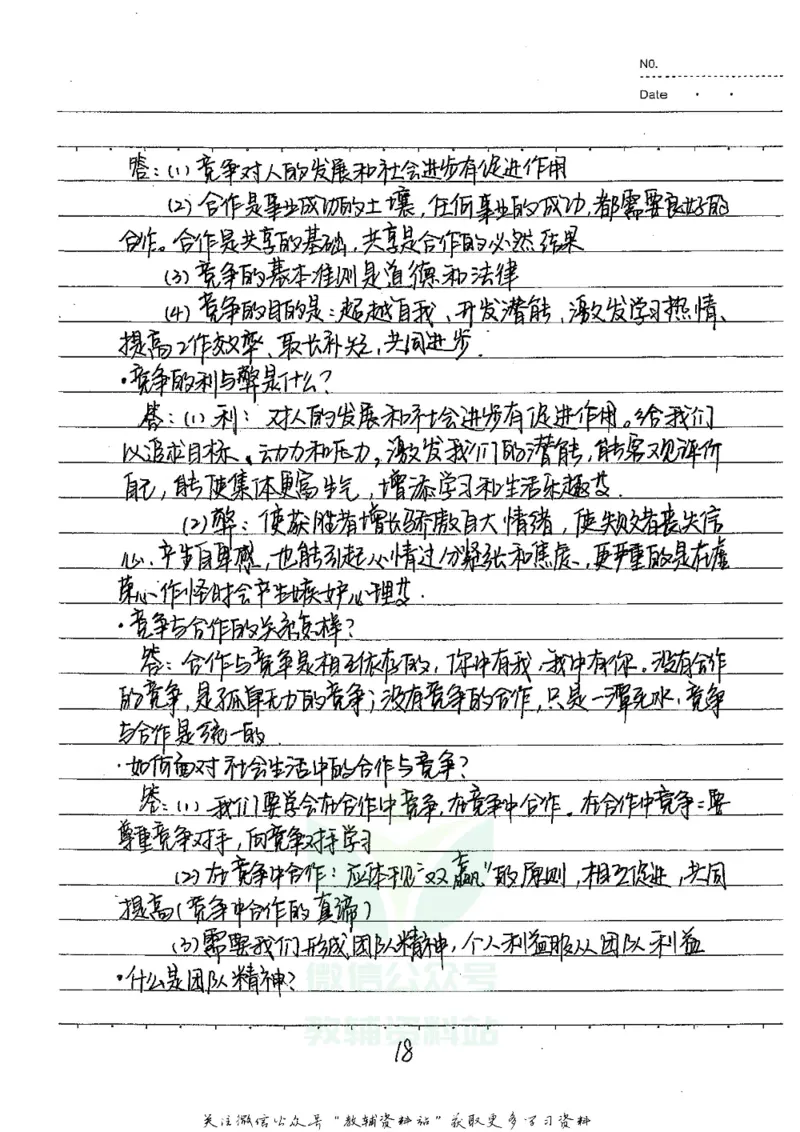 NO.
Date
答：(1) 竞争对人的发展和社会进步有促进作用
(2) 合作是事业成功的土壤，任何事业的成功，都需要良好的
合作。合作是共享的基础，共享是合作的必然结果
(3) 竞争的基本准则是道德和法律
(4) 竞争的目的是：超越自我、开发潜能，激发学习热情、
提高工作效率、取长补短，共同进步.
·竞争的利与弊是什么？
答：(1) 利：对人的发展和社会进步有促进作用。给我们
以追求目标、动力和压力。激发我们的潜能，能客观评价
自己，能使集体更富生气，增添学习和生活乐趣艾.
(2) 弊：使获胜者增长骄傲自大情绪，使失败者丧失信
心、产生自卑感，也能引起心情过分紧张和焦虑、更严重的是在虚
荣心作怪时会产生嫉妒心理艾.
·竞争与合作的关系怎样？
答：合作与竞争是相互依存的，你中有我，我中有你。没有合作
的竞争，是孤单无力的竞争；没有竞争的合作，只是一潭死水，竞争
与合作是统一的.
·如何面对社会生活中的合作与竞争？
答：(1) 我们要学会在合作中竞争，在竞争中合作。在合作中竞争：要
尊重竞争对手，向竞争对手学习
(2) 在竞争中合作：应体现“双赢”的原则，相互促进，共同
提高（竞争中合作的真谛）
(3) 需要我们形成团队精神，个人利益服从团队利益
·什么是团队精神？
微信公众号
教辅资料站
18
关注微信公众号“教辅资料站”获取更多学习资料